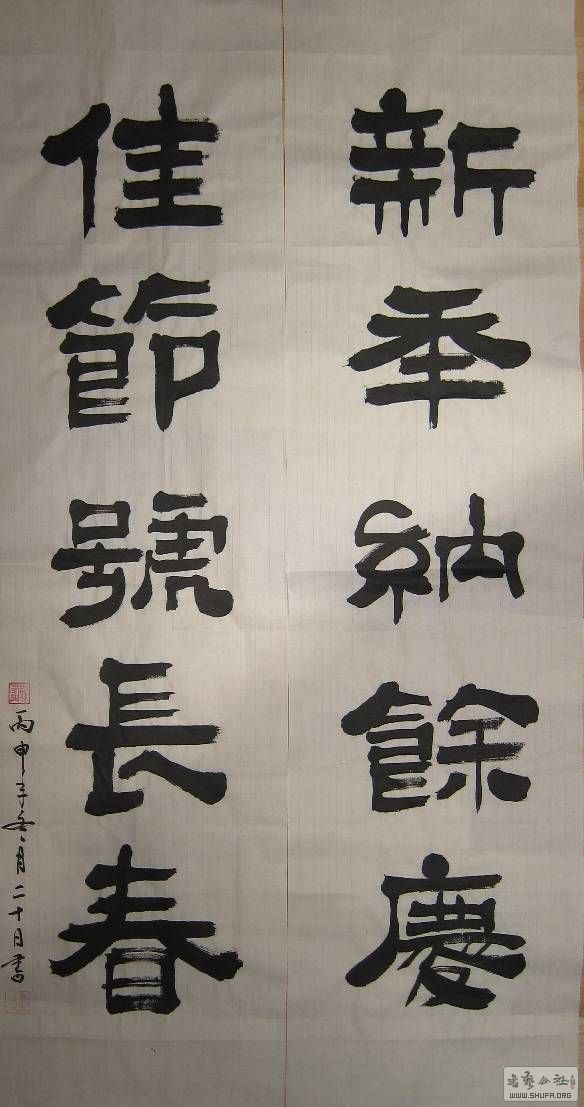 新年納餘慶
佳節號長春
丙申年冬月二十日書
书艺公社
WWW.SHUFA.ORG